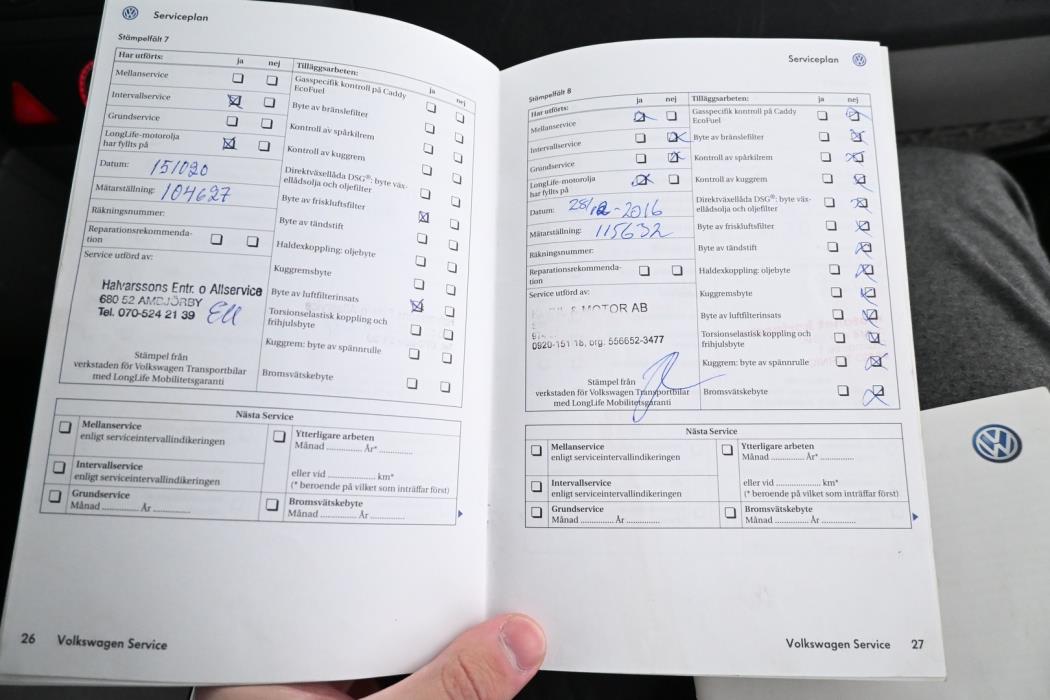 Serviceplan
Stämpelfält 7
Har utförts: ja nej
Mellanservice
Intervallservice
Grundservice
LongLife-motorolja
har fyllts på
Datum: 151020
Mätarställning: 104627
Räkningsnummer:
Reparationsrekommenda-
tion
Service utförd av:
Halvarssons Entr. o Allservice
680 52 AMBJÖRBY
Tel. 070-524 21 39
Stämpel från
verkstaden för Volkswagen Transportbilar
med LongLife Mobilitetsgaranti
Tilläggsarbeten: ja nej
Gasspecifik kontroll på Caddy
EcoFuel
Byte av bränslefilter
Kontroll av spårkilrem
Kontroll av kuggrem
Direktväxellåda DSG®: byte väx-
ellådsolja och oljefilter
Byte av friskluftsfilter
Byte av tändstift
Haldexkoppling: oljebyte
Kuggremsbyte
Byte av luftfilterinsats
Torsionselastisk koppling och
frihjulsbyte
Kuggrem: byte av spännrulle
Bromsvätskebyte
Nästa Service
Mellanservice
enligt serviceintervallindikeringen
Intervallservice
enligt serviceintervallindikeringen
Grundservice
Månad .............. År ..............
Ytterligare arbeten
Månad .............. År* ..............
eller vid .................... km*
(* beroende på vilket som inträffar först)
Bromsvätskebyte
Månad .............. År ..............
26 Volkswagen Service
Serviceplan
Stämpelfält 8
Har utförts: ja nej
Mellanservice
Intervallservice
Grundservice
LongLife-motorolja
har fyllts på
Datum: 28/12-2016
Mätarställning: 115632
Räkningsnummer:
Reparationsrekommenda-
tion
Service utförd av:
& MOTOR AB
0920-151 18, org: 556652-3477
Stämpel från
verkstaden för Volkswagen Transportbilar
med LongLife Mobilitetsgaranti
Tilläggsarbeten: ja nej
Gasspecifik kontroll på Caddy
EcoFuel
Byte av bränslefilter
Kontroll av spårkilrem
Kontroll av kuggrem
Direktväxellåda DSG®: byte väx-
ellådsolja och oljefilter
Byte av friskluftsfilter
Byte av tändstift
Haldexkoppling: oljebyte
Kuggremsbyte
Byte av luftfilterinsats
Torsionselastisk koppling och
frihjulsbyte
Kuggrem: byte av spännrulle
Bromsvätskebyte
Nästa Service
Mellanservice
enligt serviceintervallindikeringen
Intervallservice
enligt serviceintervallindikeringen
Grundservice
Månad .............. År ..............
Ytterligare arbeten
Månad .............. År* ..............
eller vid .................... km*
(* beroende på vilket som inträffar först)
Bromsvätskebyte
Månad .............. År ..............
Volkswagen Service 27